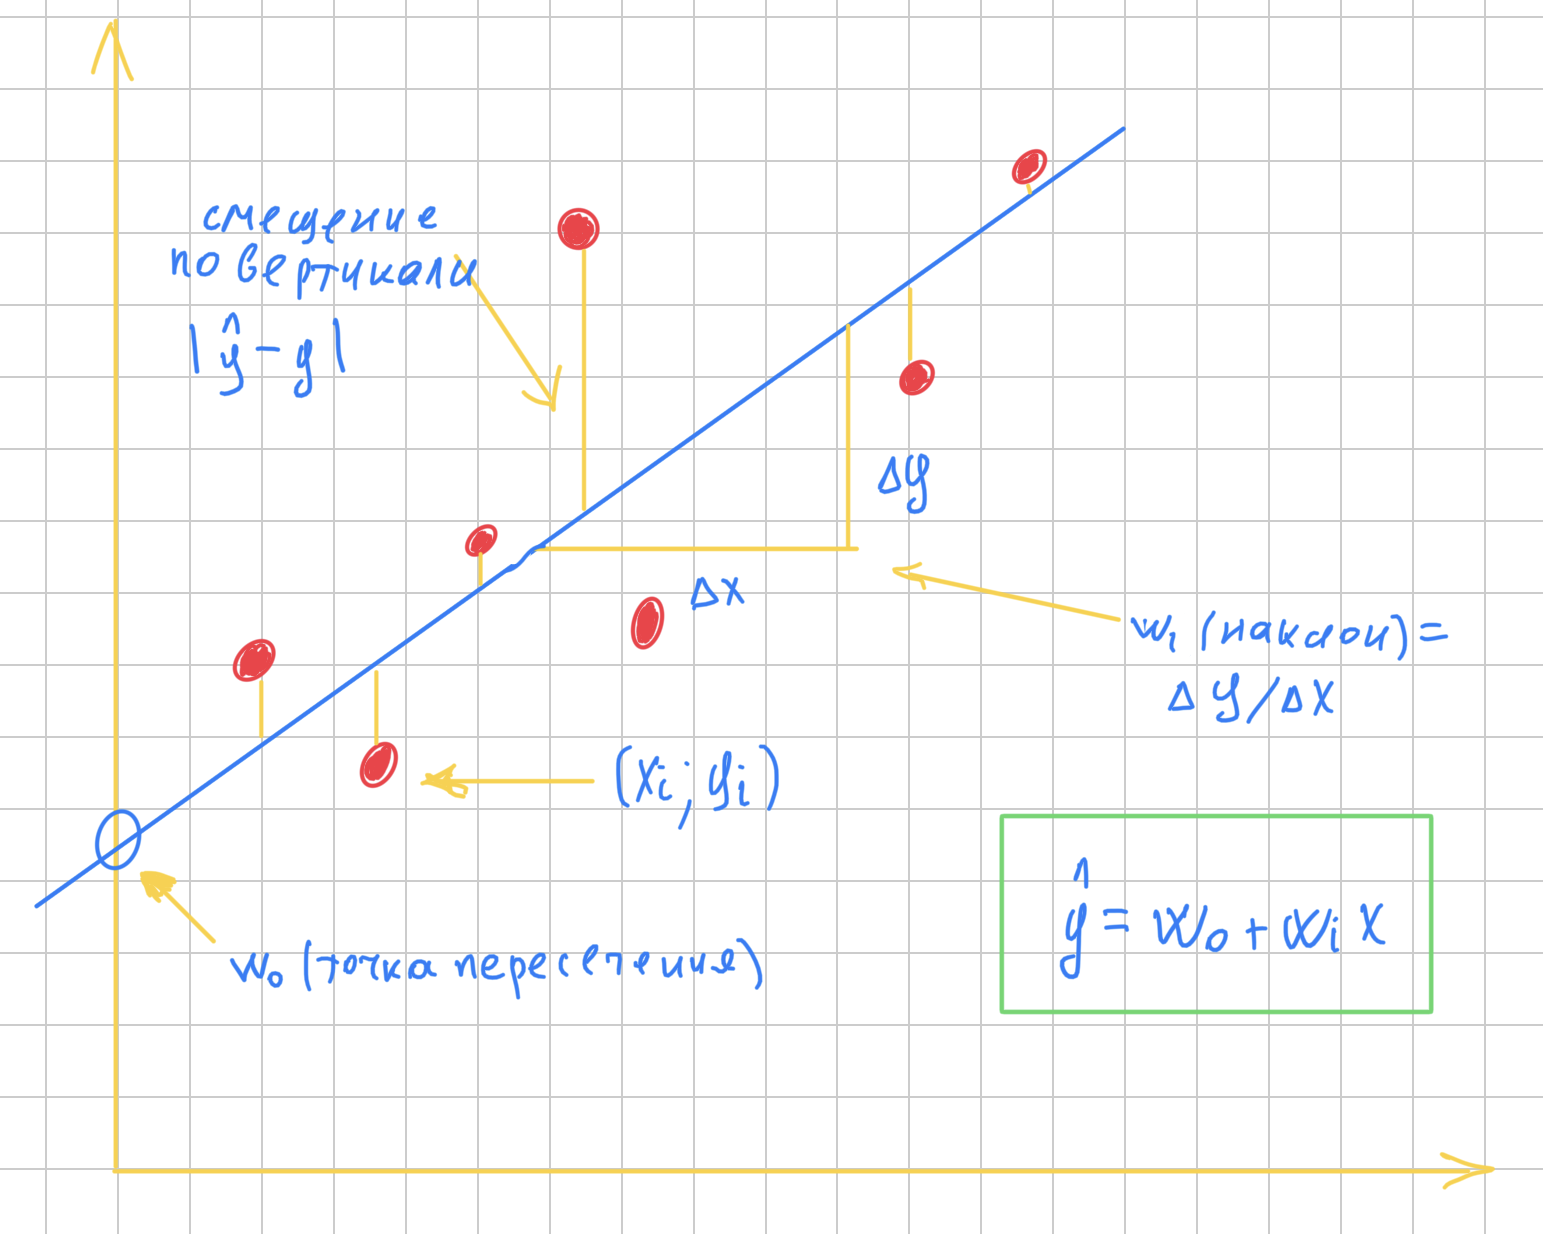 смещение
по вертикали
| ŷ - y |
Δy
Δx
w₁ (наклон) =
Δy/Δx
(xi; yi)
ŷ = w₀ + wi x
w₀ (точка пересечения)